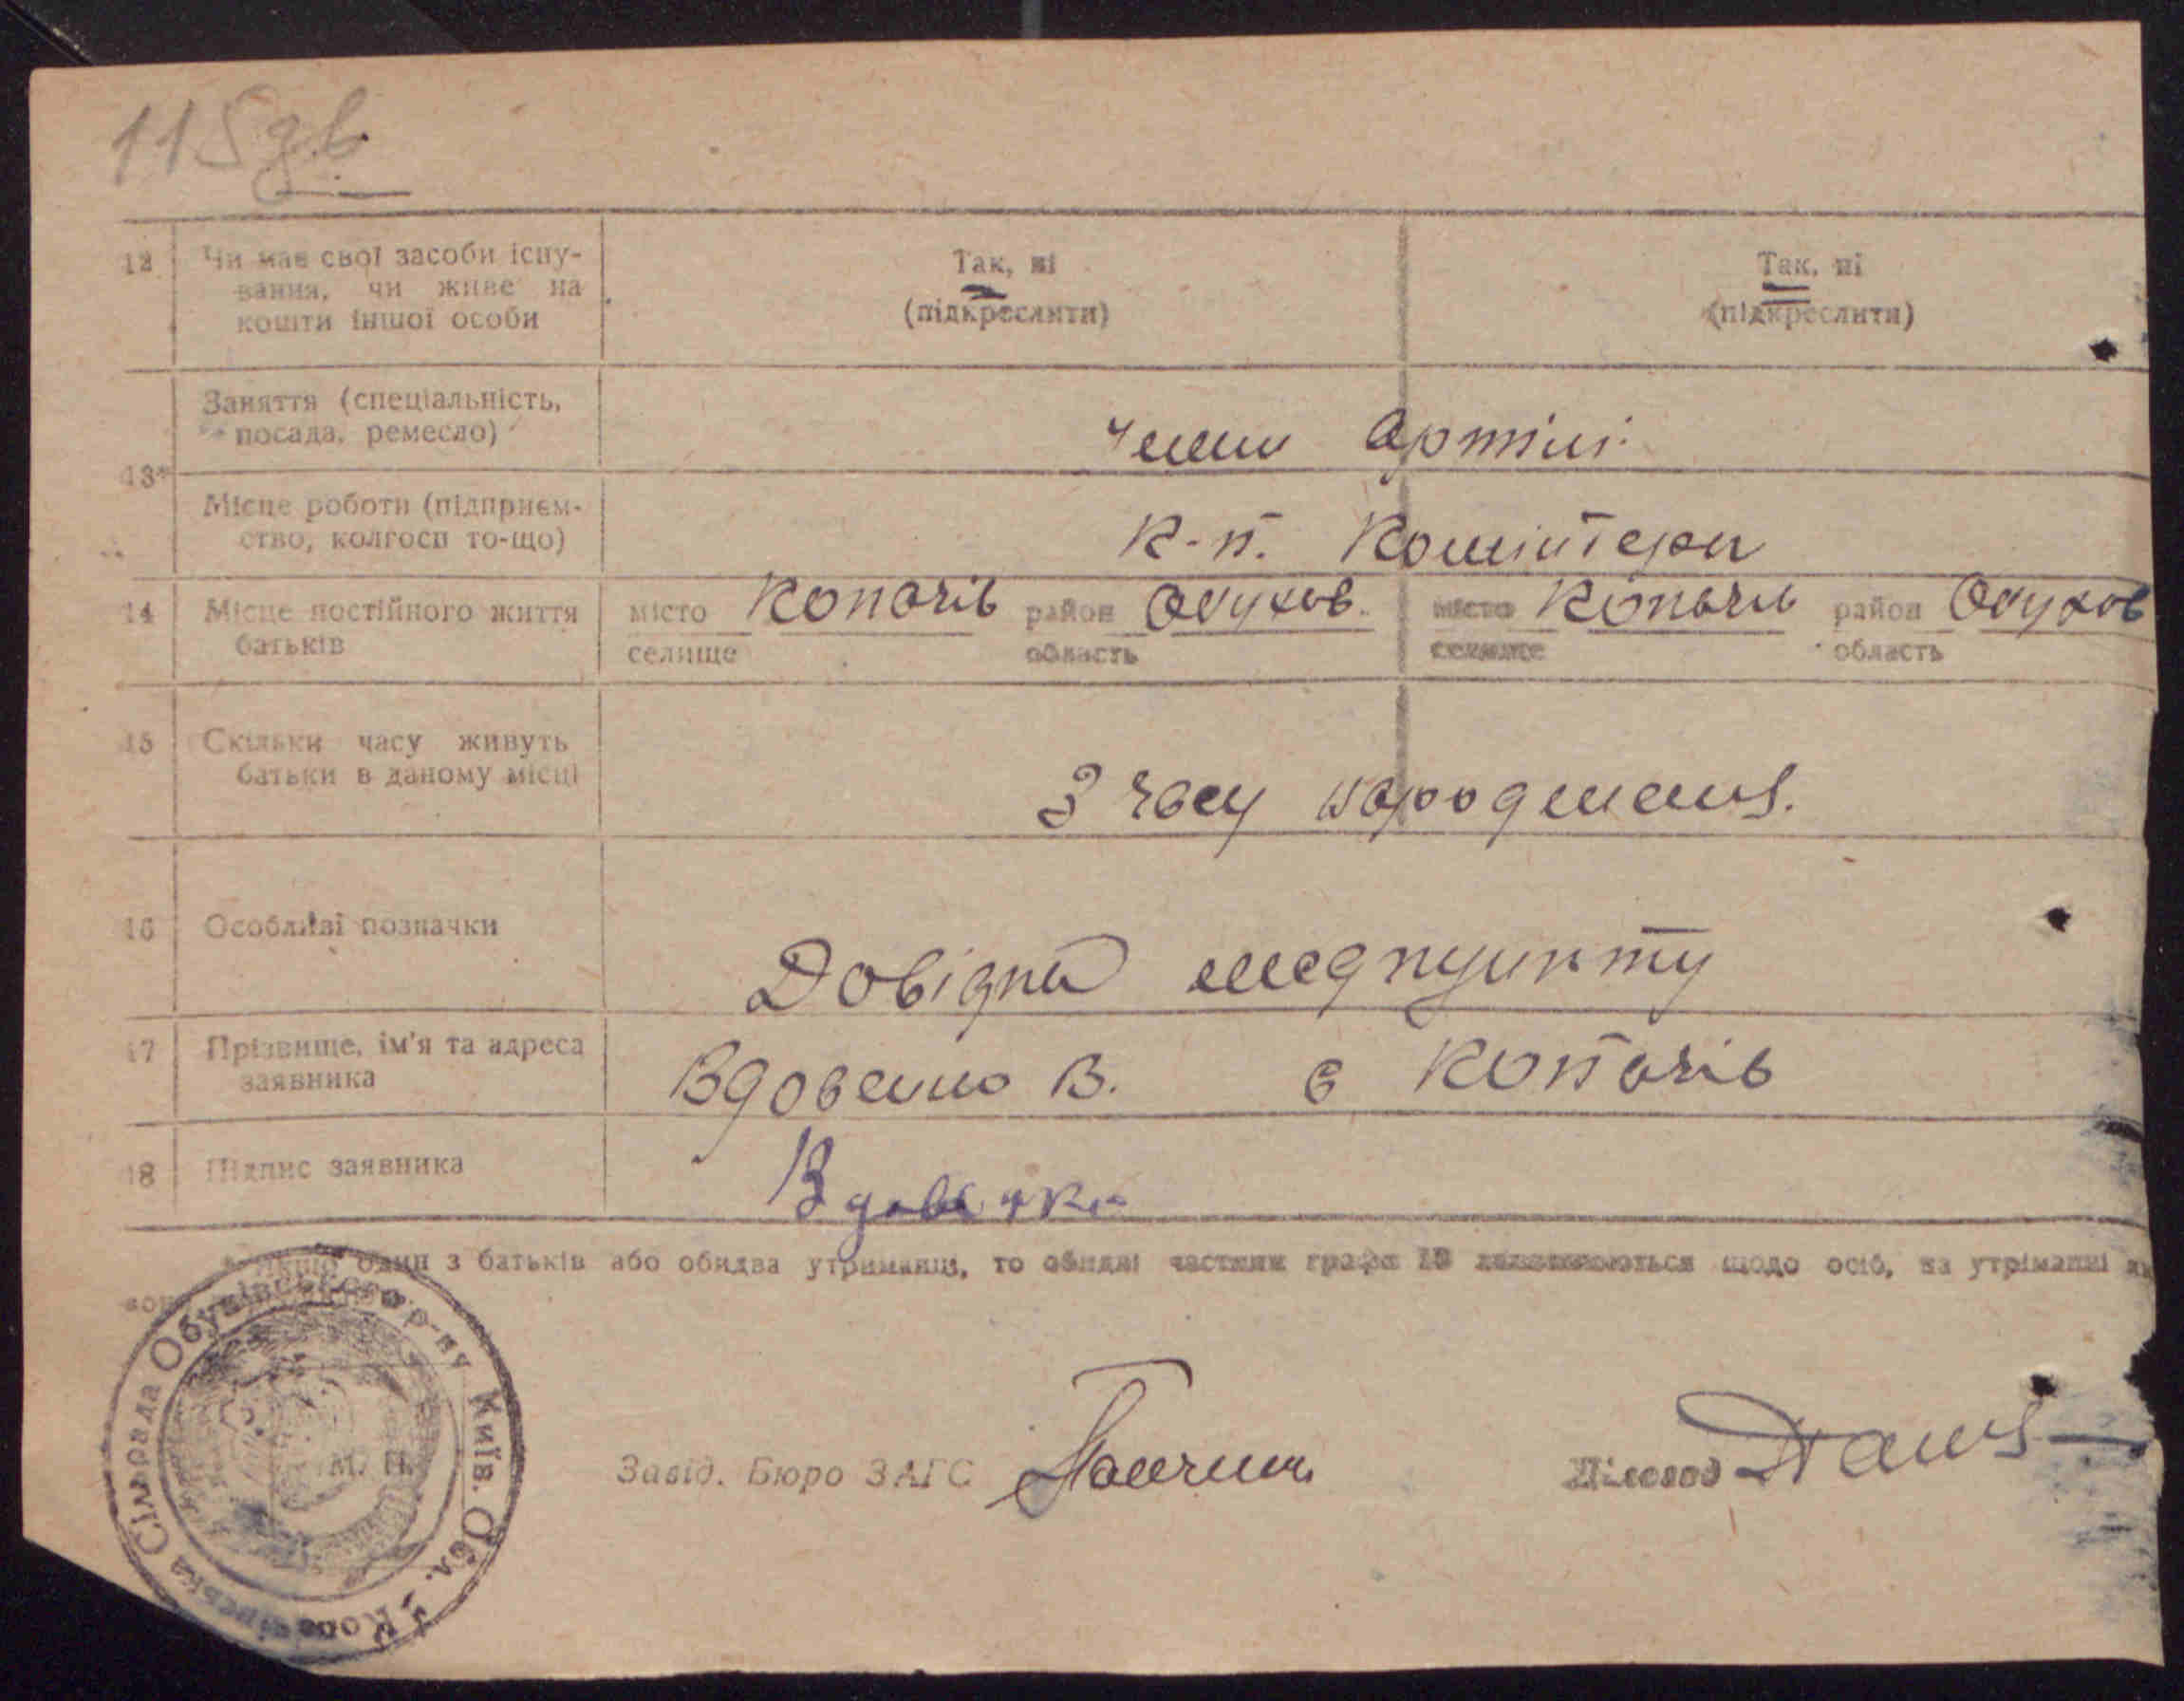 115 зв
12 Чи має свої засоби існу-
вання, чи живе на
кошти іншої особи
Так, ні
(підкреслити)
Так, ні
(підкреслити)
13*
Заняття (спеціальність,
посада, ремесло)
Члени Артілі
Місце роботи (підприєм-
ство, колгосп то-що)
к-п. Комінтерн
14 Місце постійного життя
батьків
місто Копачів район Обухов.
селище область
місто Копачів район Обухов
селище область
15 Скільки часу живуть
батьки в даному місці
З часу народження.
16 Особливі позначки
Довідка медпункту
17 Прізвище, ім'я та адреса
заявника
Вдовенко В. с Копачів
18 Підпис заявника
Вдовенко
* Якщо один з батьків або обидва утриманці, то обидві частини графи 13 заповнюються щодо осіб, на утриманні як
вони
Копачівська Сільрада Обухівського р-ну Київ. Обл.
М. П.
Завід. Бюро ЗАГС
Діловод